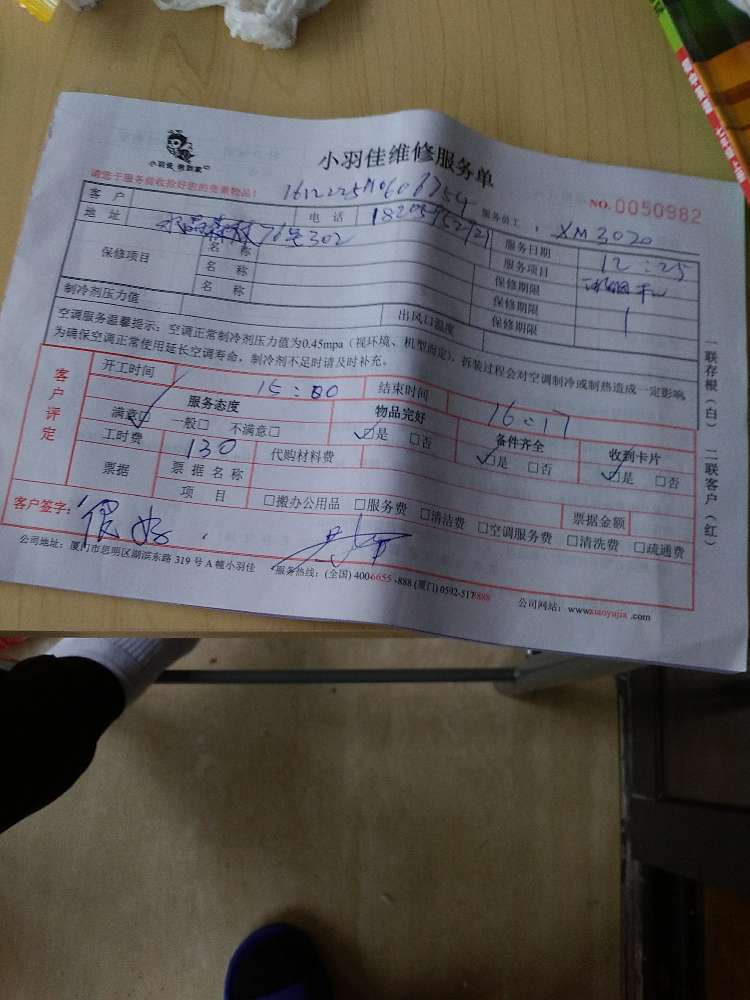 小羽佳 亲到家
小羽佳维修服务单
请您于服务前收拾好您的贵重物品!
NO. 0050982
客 户
电 话
服务员工
XM3020
地 址
76号302
服务日期
12:25
保修项目
名 称
服务项目
名 称
保修期限
1
名 称
保修期限
保修期限
制冷剂压力值
出风口温度
空调服务温馨提示:空调正常制冷剂压力值为0.45mpa(视环境、机型而定),拆装过程会对空调制冷或制热造成一定影响
为确保空调正常使用延长空调寿命,制冷剂不足时请及时补充。
客户评定
开工时间
15:00
结束时间
16:17
服务态度
物品完好
备件齐全
收到卡片
满意□ 一般□ 不满意□
□是 □否
□是 □否
□是 □否
工时费
130
代购材料费
票据
票据名称
项 目
□搬办公用品 □服务费 □清洁费 □空调服务费 □清洗费 □疏通费
票据金额
客户签字:
很好.
公司地址:厦门市思明区湖滨东路 319 号 A 幢小羽佳
服务热线:(全国) 4006655-888 (厦门) 0592-5178888
公司网站:www.xiaoyujia.com
一联存根(白) 二联客户(红)